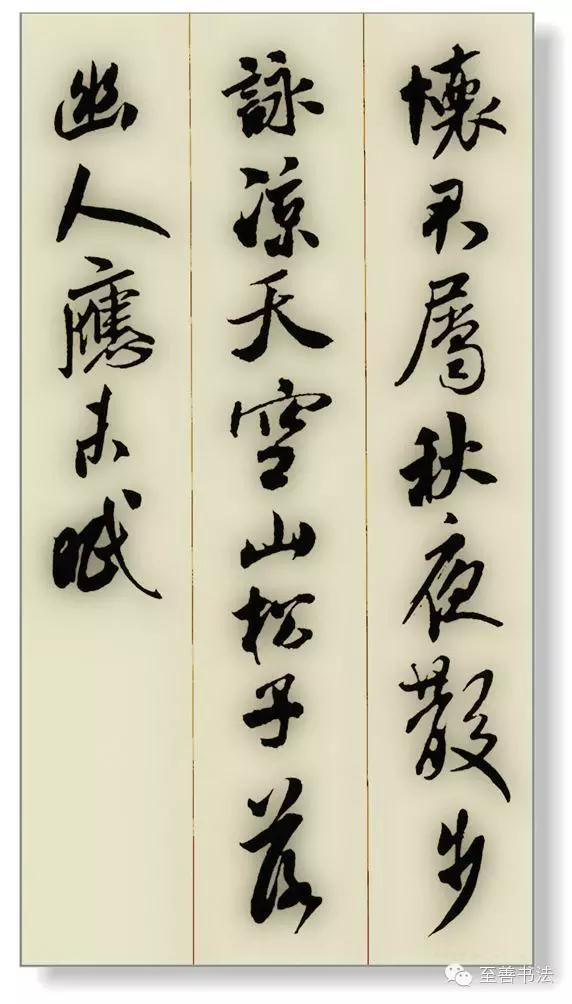 懷君屬秋夜散步
詠涼天空山松子落
幽人應未眠
至善书法